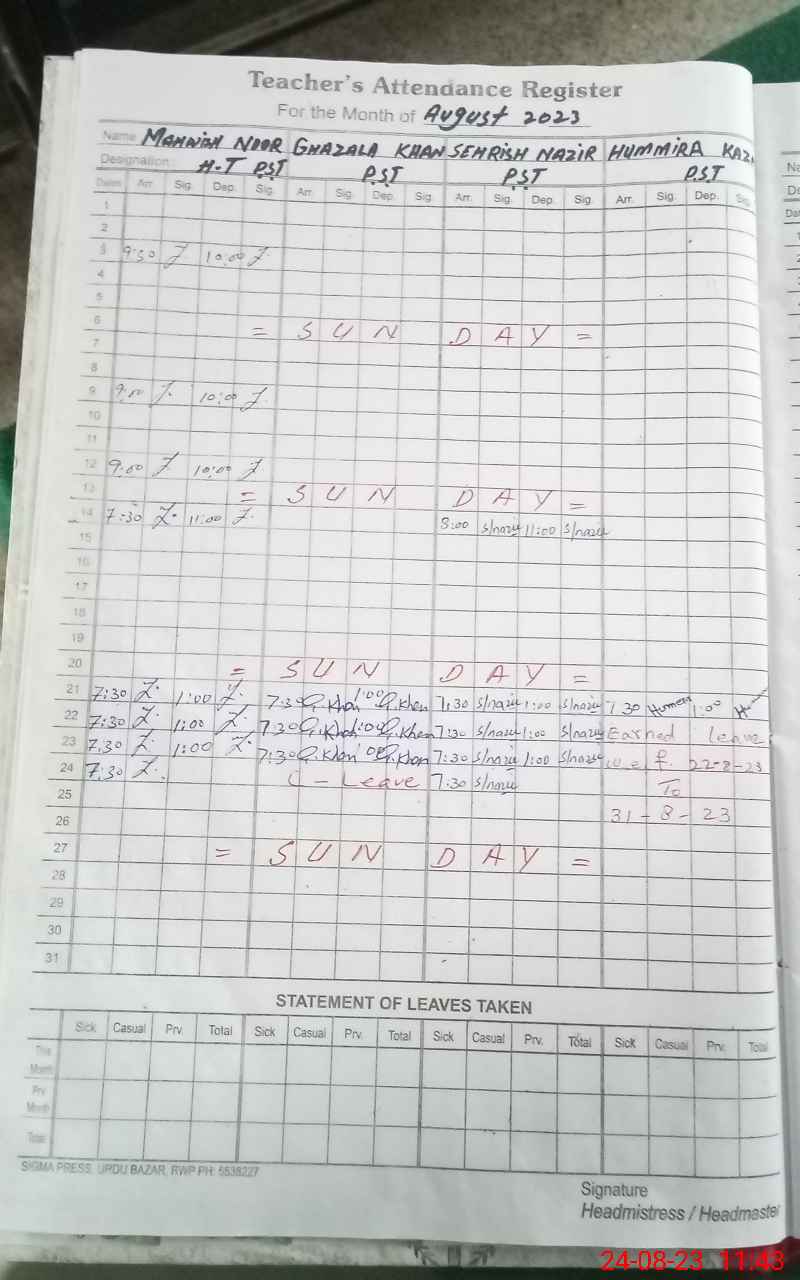 Teacher's Attendance Register
For the Month of August 2023
Name MAHWISH NOOR GHAZALA KHAN SEHRISH NAZIR HUMMIRA KAZ
Designation H-T PST PST PST PST
Dates Arr. Sig. Dep. Sig. Arr. Sig. Dep. Sig. Arr. Sig. Dep. Sig. Arr. Sig. Dep. Sig.
1
2
3 9:30 10:00
4
5
6 = SUN DAY =
7
8
9 9:00 10:00
10
11
12 9:00 10:00
13 = SUN DAY =
14 7:30 11:00 8:00 S/nazir 11:00 S/nazir
15
16
17
18
19
20 = SUN DAY =
21 7:30 1:00 7:30 G.Khan 1:00 G.Khan 7:30 S/nazir 1:00 S/nazir 7:30 1:00
22 7:30 1:00 7:30 G.Khan 1:00 G.Khan 7:30 S/nazir 1:00 S/nazir Earned leave
23 7:30 1:00 7:30 G.Khan 1:00 G.Khan 7:30 S/nazir 1:00 S/nazir w.e.f. 22-8-23
24 7:30 C - Leave 7:30 S/nazir To
25 31-8-23
26
27 = SUN DAY =
28
29
30
31
STATEMENT OF LEAVES TAKEN
Sick Casual Prv. Total Sick Casual Prv. Total Sick Casual Prv. Total Sick Casual Prv. Total
This Month
Prv. Month
Total
SIGMA PRESS, URDU BAZAR, RWP PH: 5538227
Signature
Headmistress / Headmaster
24-08-23 11:43